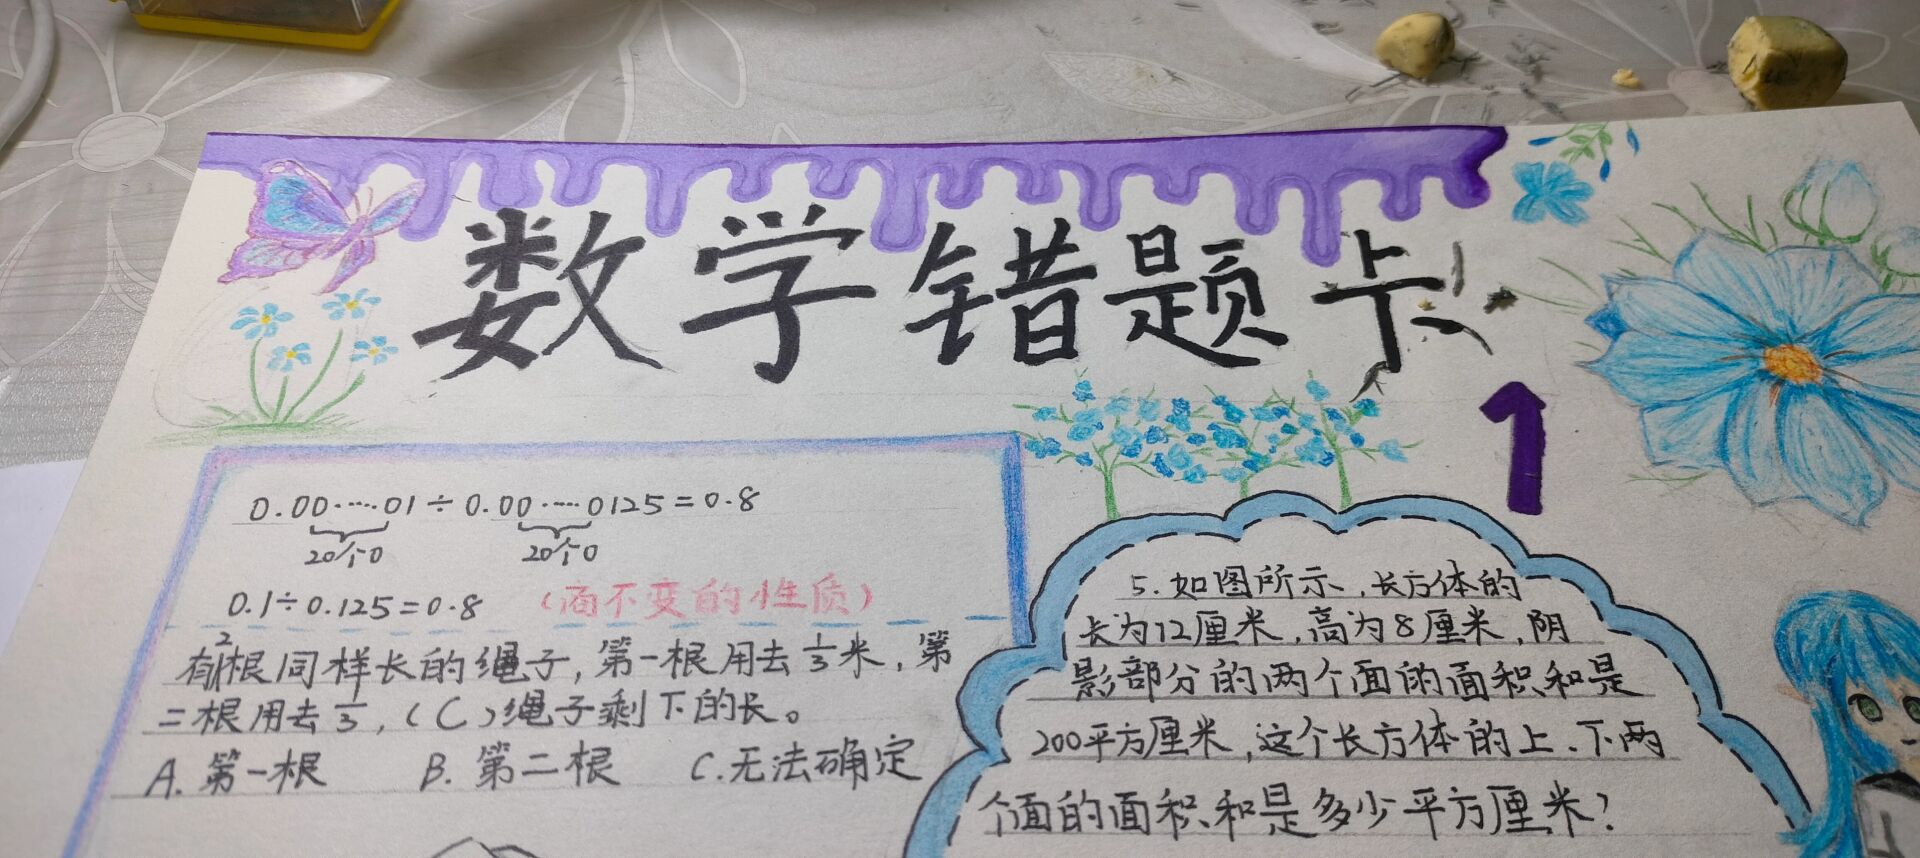 数学错题卡
1
0.00……01÷0.00……0125=0.8
20个0 20个0
0.1÷0.125=0.8 (商不变的性质)
有2根同样长的绳子,第一根用去1/3米,第
二根用去1/3,(C)绳子剩下的长。
A.第一根 B.第二根 C.无法确定
5.如图所示,长方体的
长为12厘米,高为8厘米,阴
影部分的两个面的面积和是
200平方厘米,这个长方体的上、下两
个面的面积和是多少平方厘米?